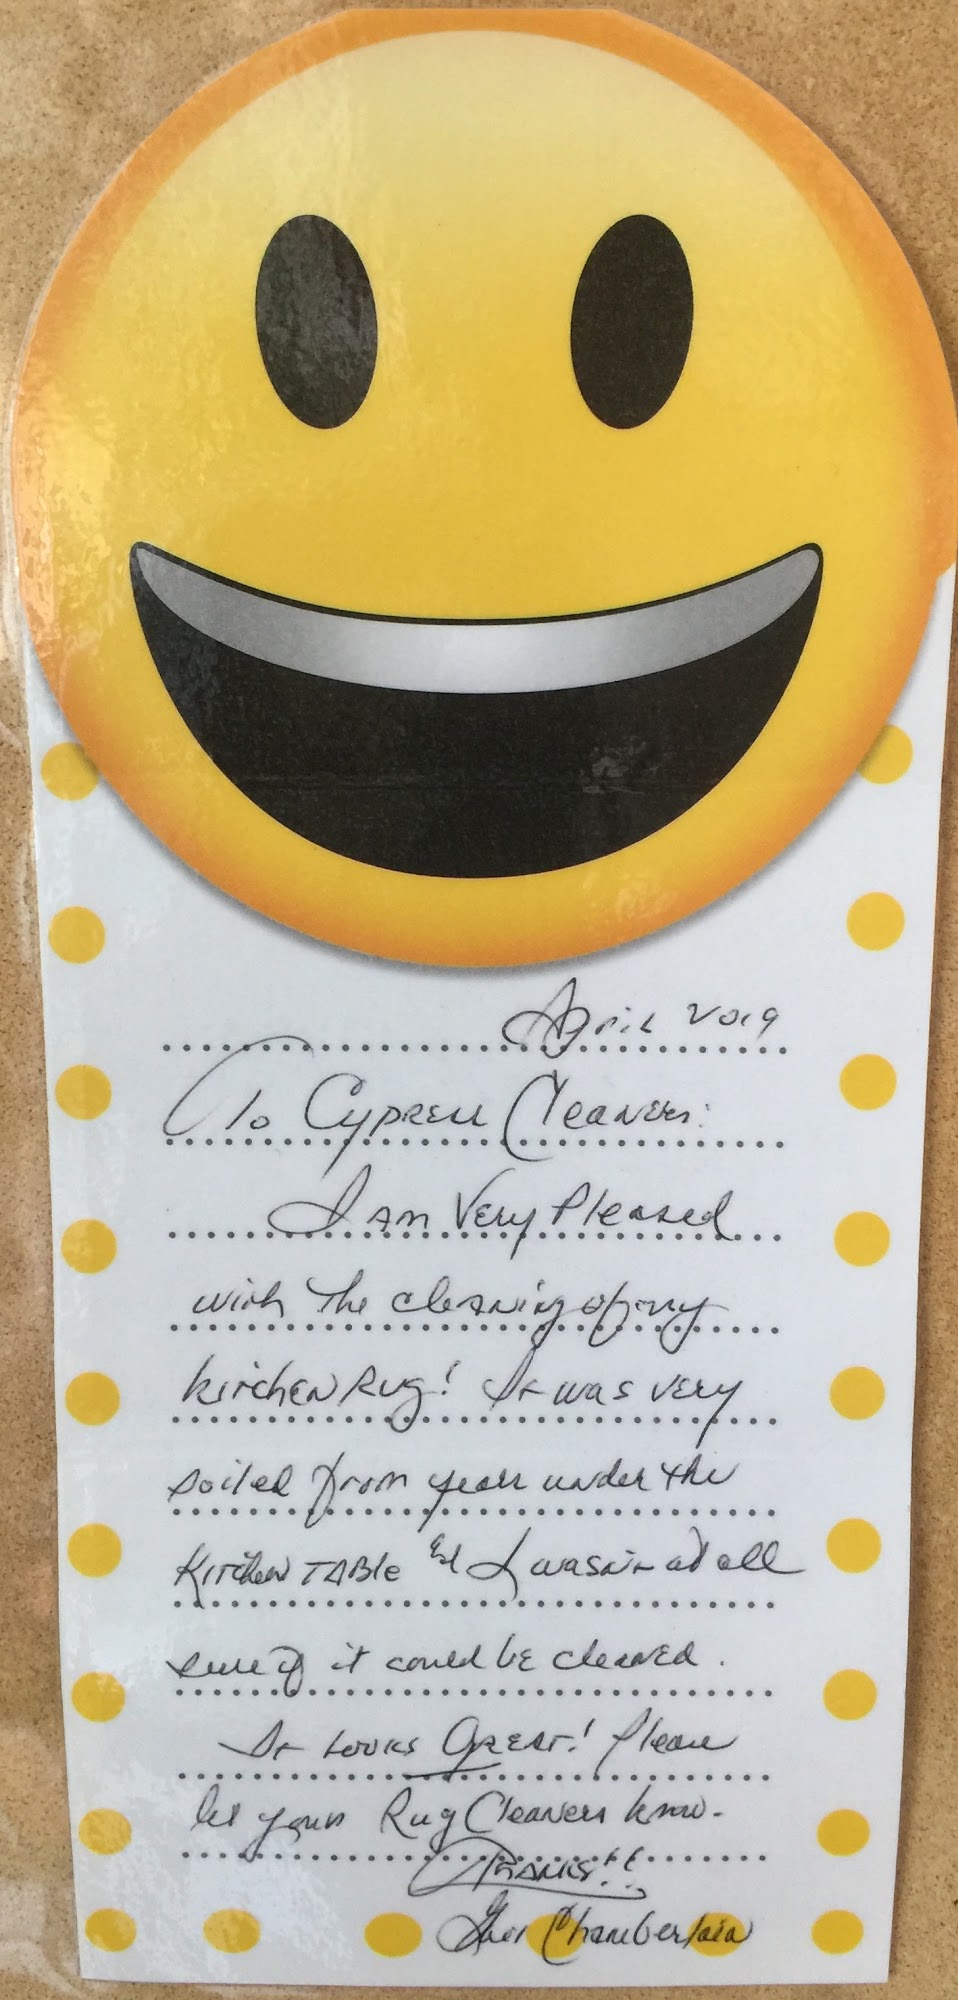 April 2019
To Cypress Cleaners:
I am Very Pleased
with The cleaning of my
kitchen Rug! It was very
soiled from years under the
Kitchen TABle & I wasn't at all
sure if it could be cleaned.
It Looks Great! Please
let your Rug Cleaners know.
Thanks!!
Chamberlain